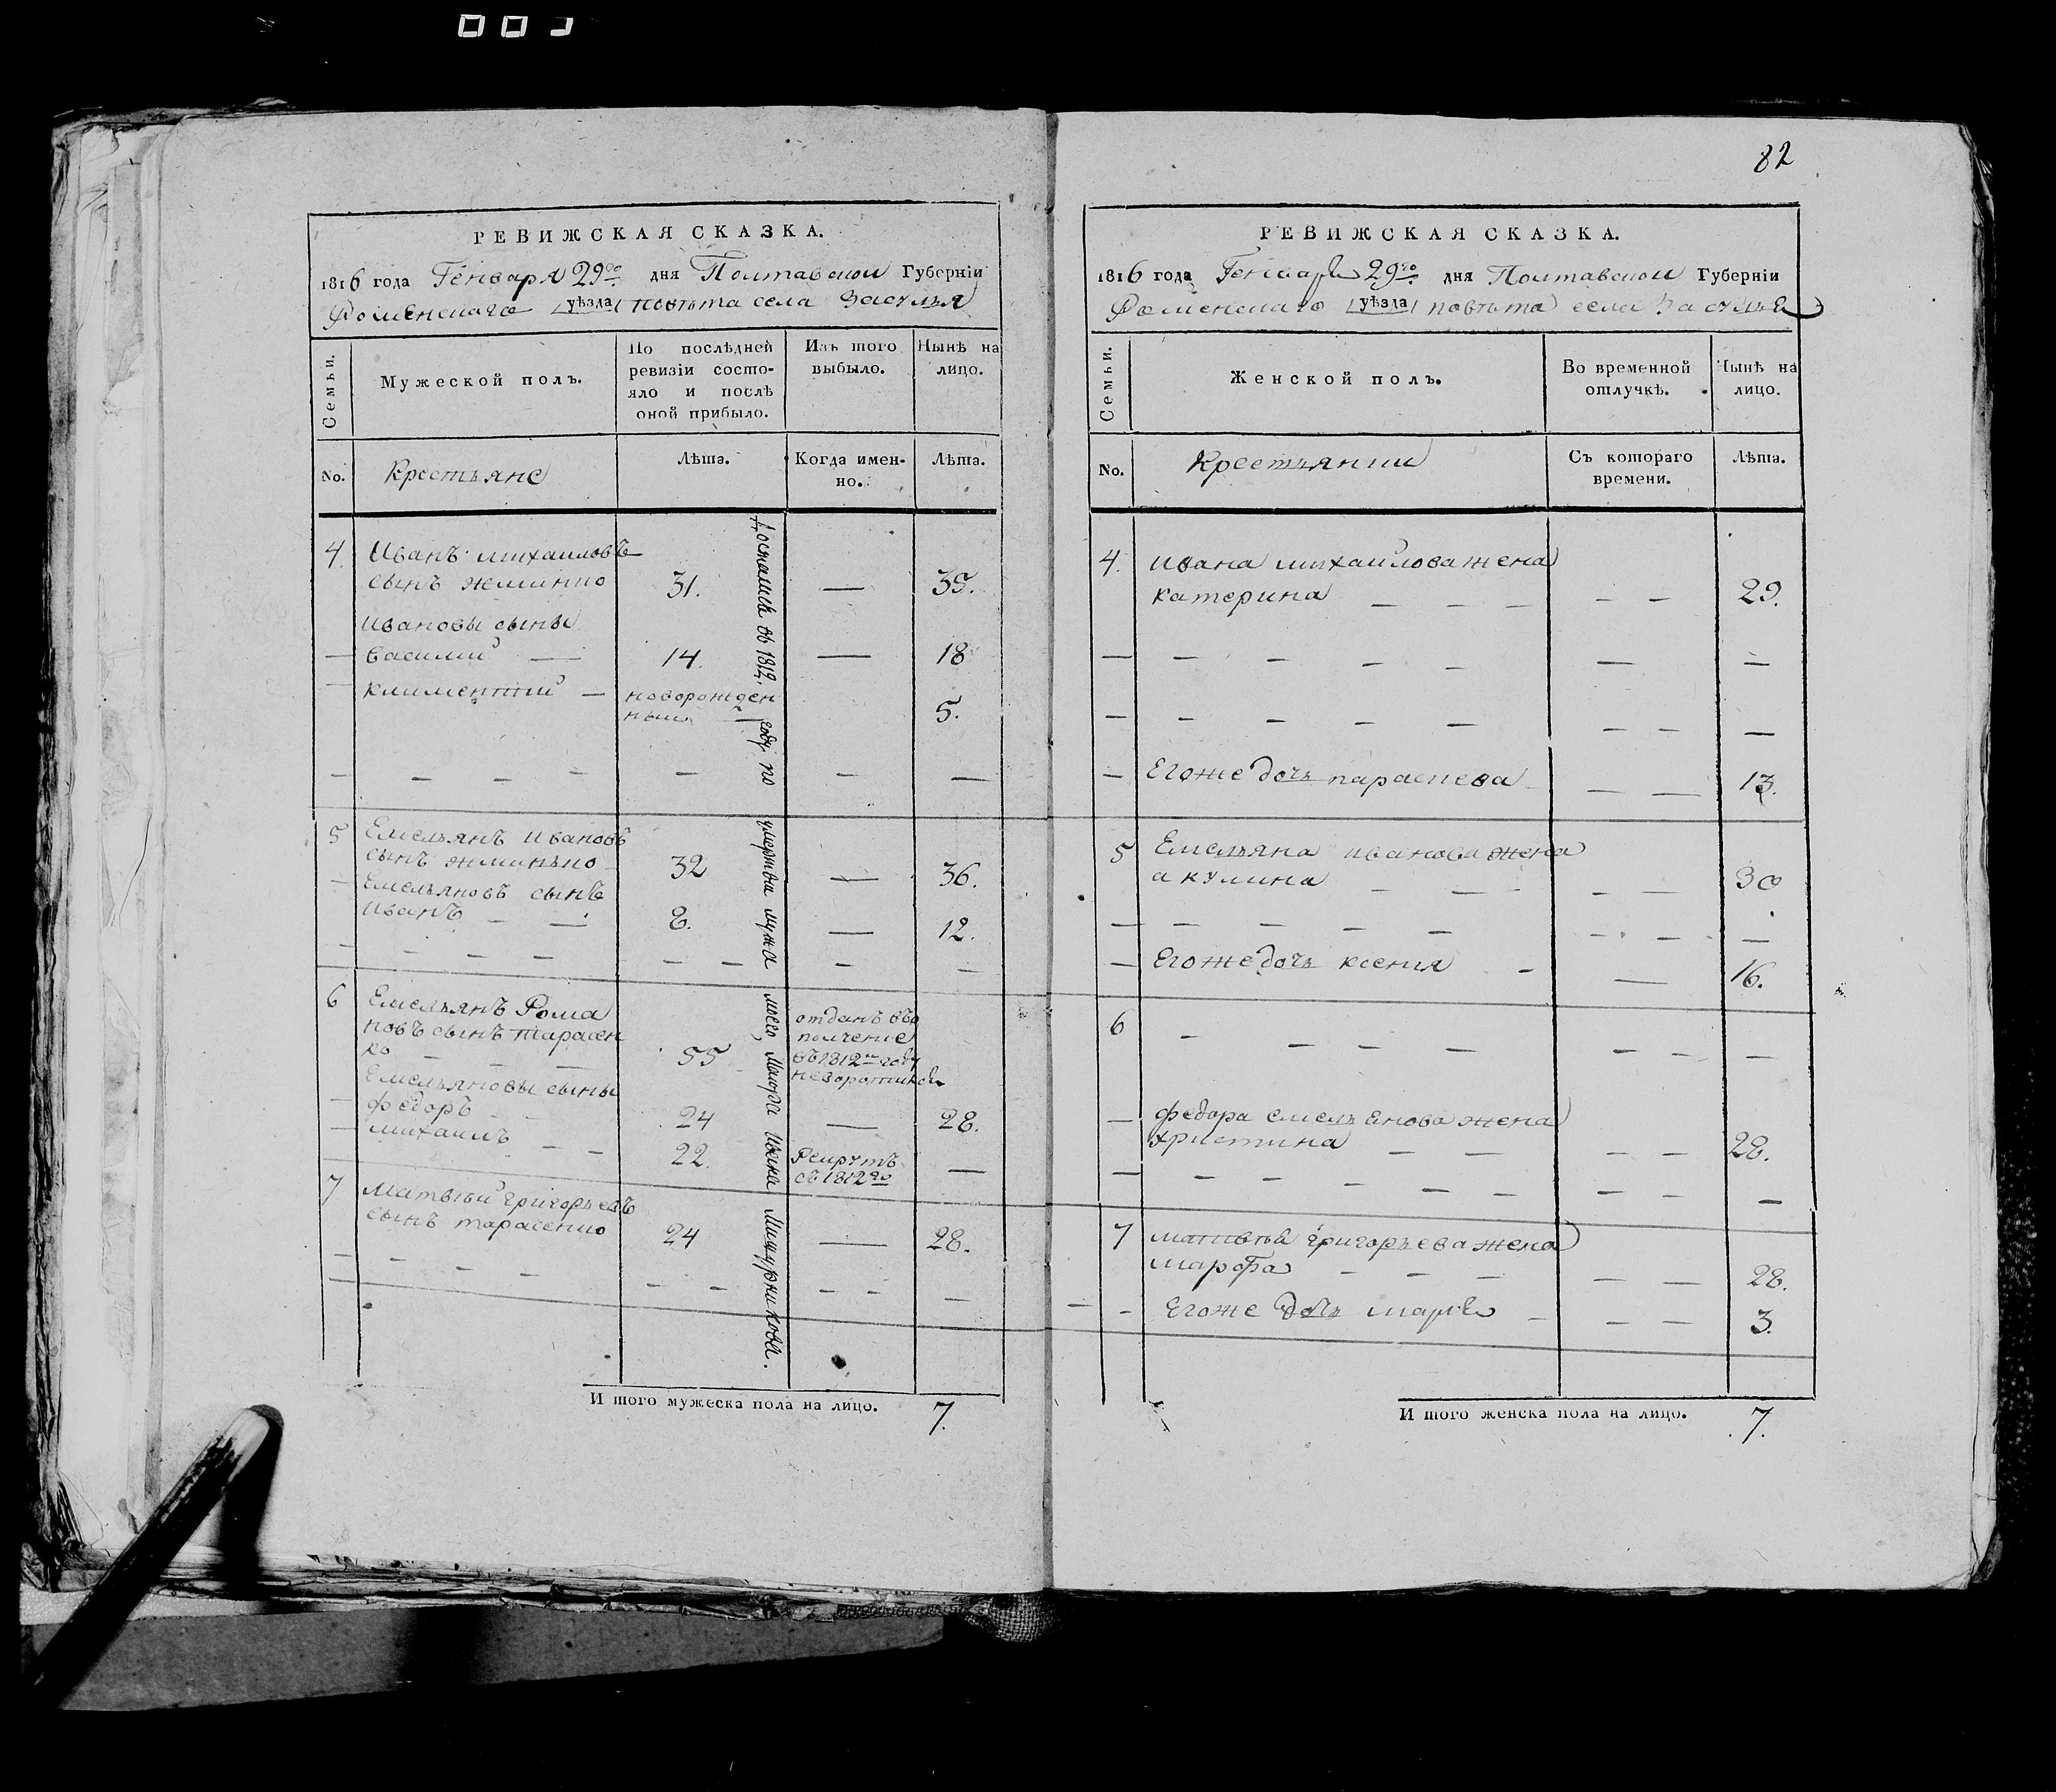 82
РЕВИЖСКАЯ СКАЗКА.
1816 года Генваря 29го дня Полтавской Губернїи
Роменского уѣзда повѣта села Засулья
Семьи.
Мужеской полъ.
По послѣдней ревизїи состояло и послѣ оной прибыло.
Изъ того выбыло.
Нынѣ на лицо.
No.
Крестьяне
Лѣта.
Когда именно.
Лѣта.
4. Иванъ михаиловъ
сынъ жеминко 31. — 35.
Ивановы сыны
— Василий — 14. — 18
— климентий — новорожден
ный 5.
— — — — — — —
5 Емельянъ ивановъ
сынъ жминько 32 — 36.
— Емельяновъ сынъ
иванъ — — 8. — 12.
— — — — — — — —
6 Емельянъ Рома
новъ сынъ тарасен
ко — — 55 отданъ въ о
полчение
въ 1812м году
невозратился
Емельяновы сыны
— федоръ — — 24 — 28.
— михаилъ — — 22. Рекрутъ
съ 1812го —
7 Матвѣй григорьевъ
сынъ тарасенко 24 — 28.
— — — — — — — — —
Достались въ 1812. году. по умертвии мужа моего, Маиора Ивана Мицурникова.
И того мужеска пола на лицо. 7.
РЕВИЖСКАЯ СКАЗКА.
1816 года Генваря 29го дня Полтавской Губернїи
Роменского уѣзда повѣта села Засулья
Семьи.
Женской полъ.
Во временной отлучкѣ.
Нынѣ на лицо.
No.
Крестьянки
Съ котораго времени.
Лѣта.
4. ивана михайлова жена
катерина — — — — — 29.
— — — — — — —
— — — — — — — —
— Егоже дочь параскева — — 13.
5 Емельяна иванова жена
акулина — — — — 30
— — — — — — — —
— Егоже дочь ксения — — 16.
6 — — — — — — —
— федора емельянова жена
христина — — — — 28.
— — — — — — — — —
7 матвѣя григорьева жена
марфа — — — — — 28.
— — Егоже дочь марья — — — 3.
И того женска пола на лицо. 7.